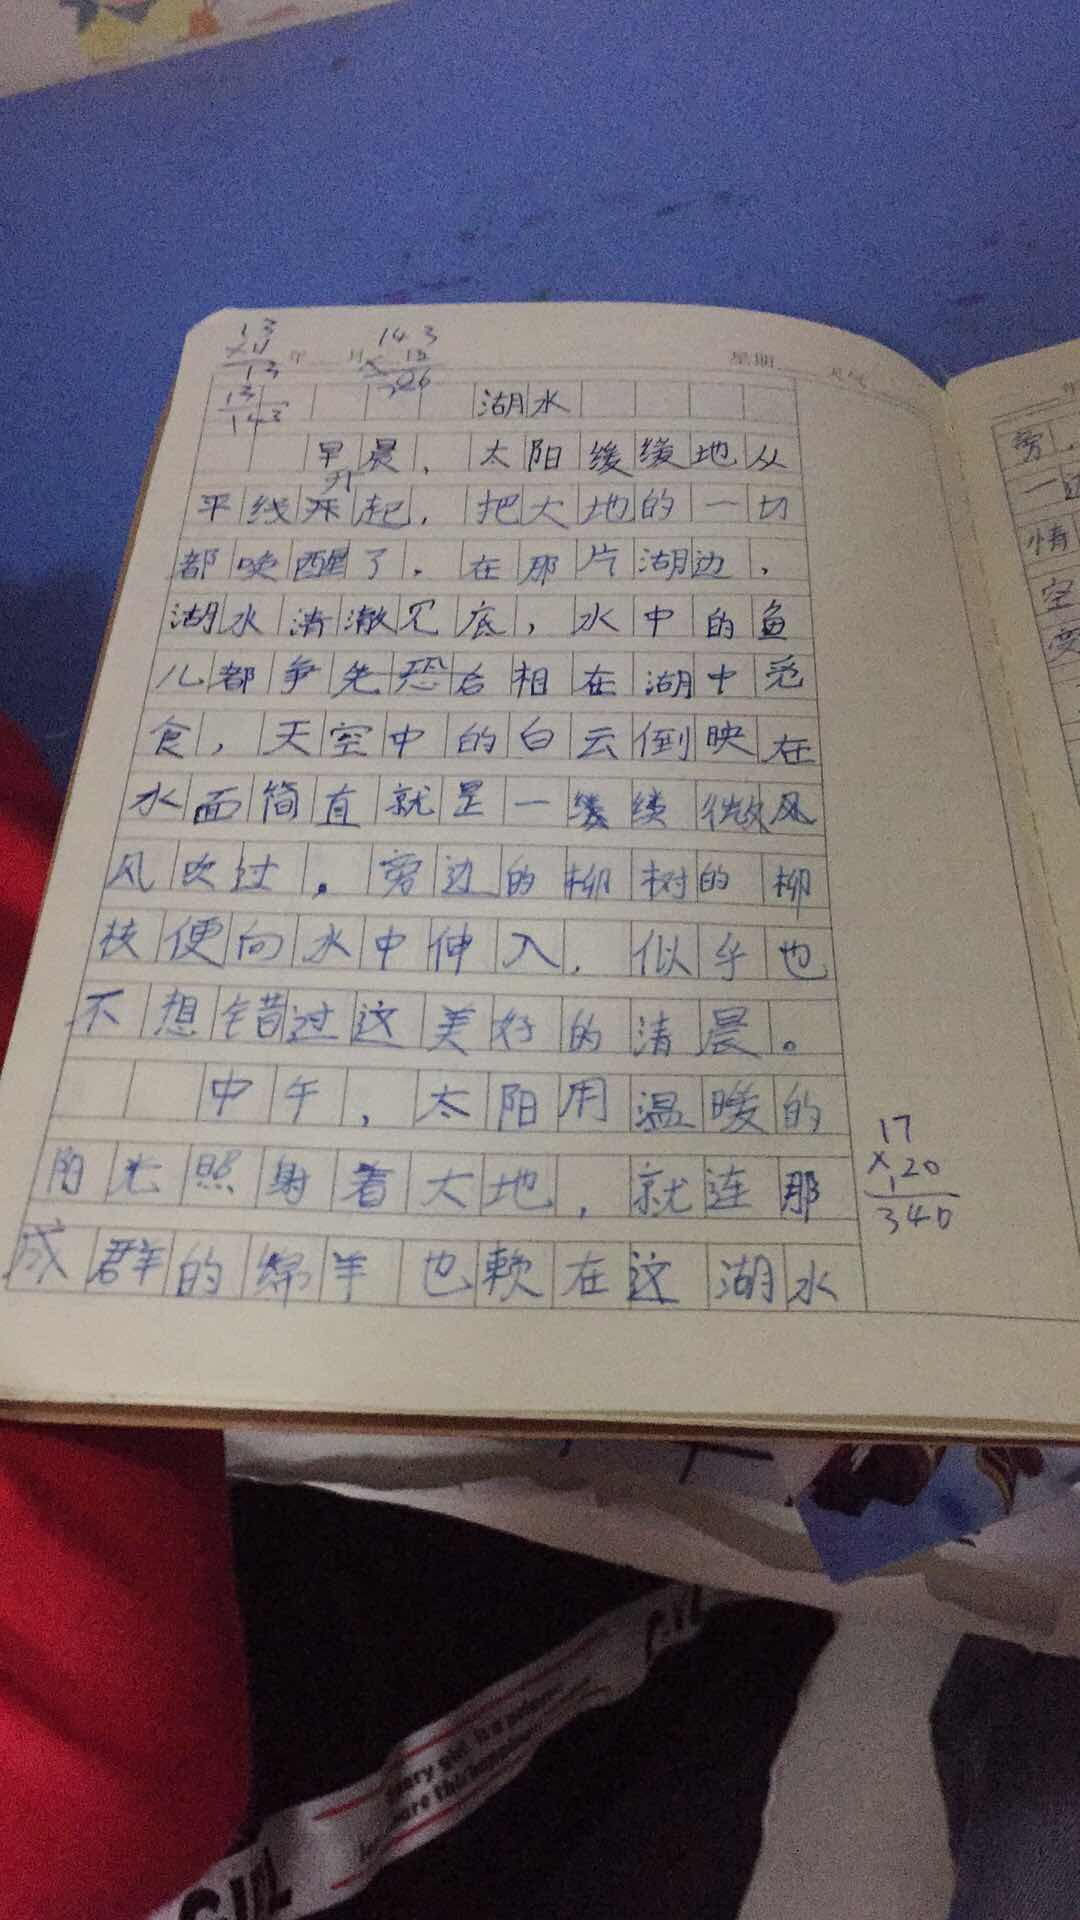 13
×11
13
13
143
143
星期
湖水
早晨，太阳缓缓地从
平线升起，把大地的一切
都唤醒了。在那片湖边，
湖水清澈见底，水中的鱼
儿都争先恐后相在湖中觅
食，天空中的白云倒映在
水面简直就是一缕缕微风
风吹过。旁边的柳树的柳
枝便向水中伸入，似乎也
不想错过这美好的清晨。
中午，太阳用温暖的
阳光照射着大地，就连那
成群的绵羊也赖在这湖水
17
×20
340
旁，
一边
情
空
GIRL